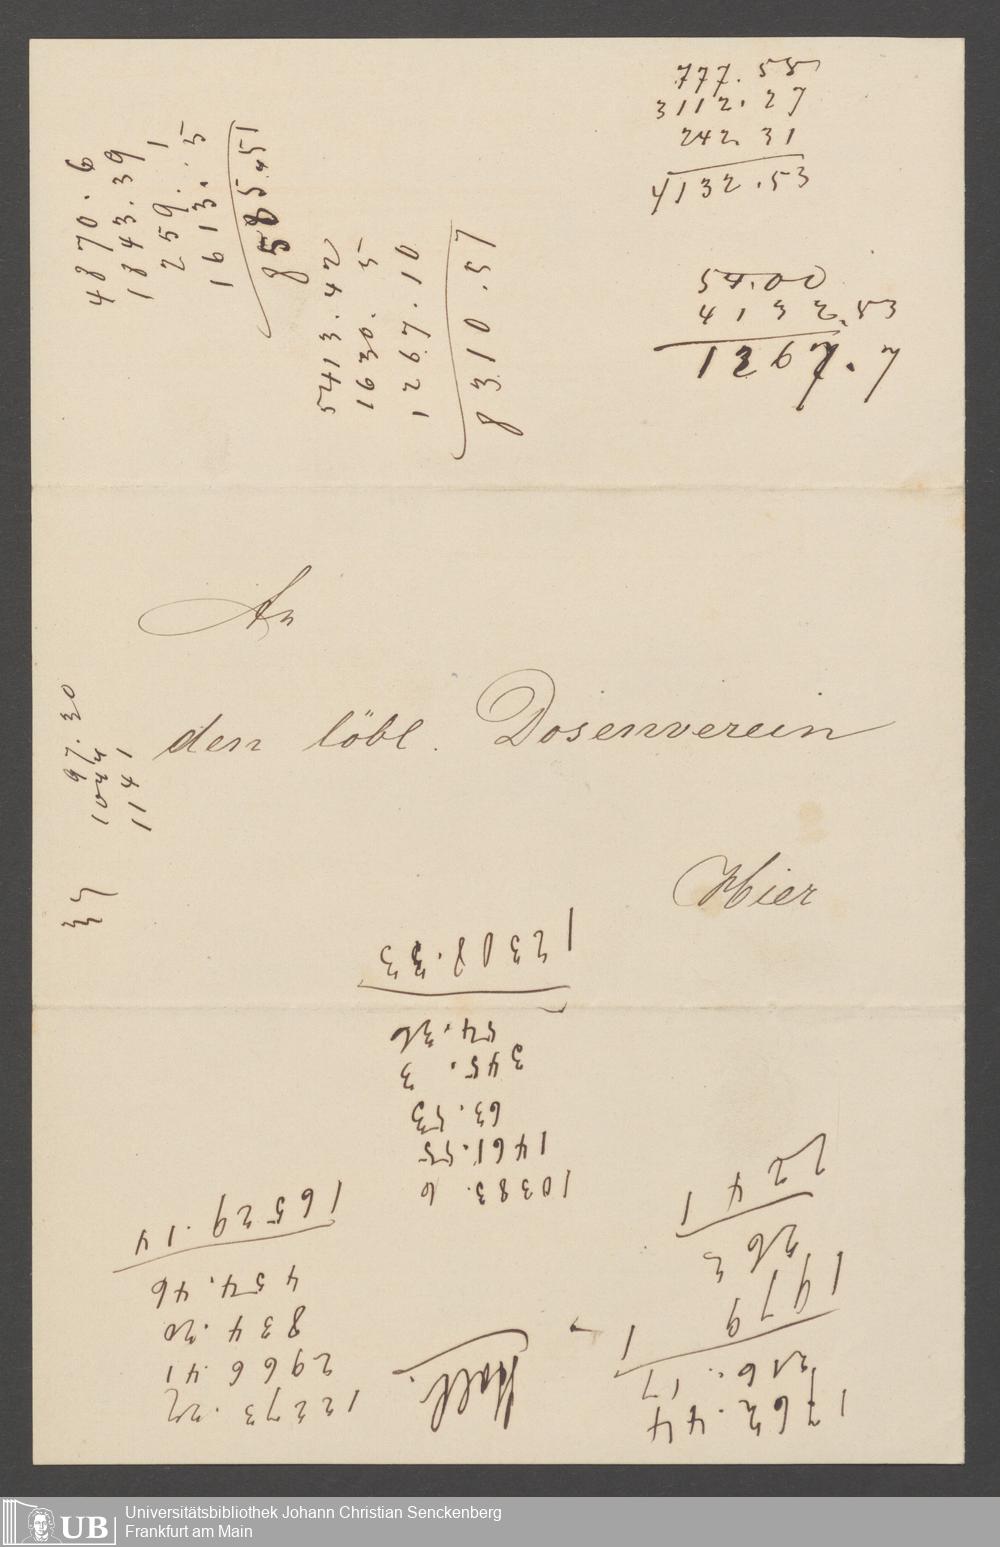 777.58
3112.27
242.31
4132.53
5400
4132.53
1267.7
4870.6
1843.39
259.1
1613.5
8585.51
5413.42
1630.5
1267.10
8310.57
An
den löbl. Dosenverein
Hier
97.30
1141
10383.6
1461.55
63.53
345.3
54.36
12308.33
12273.27
2966.41
834.20
454.46
16529.14
1762.44
216.17
1979.1
263
2241
UB
Universitätsbibliothek Johann Christian Senckenberg
Frankfurt am Main